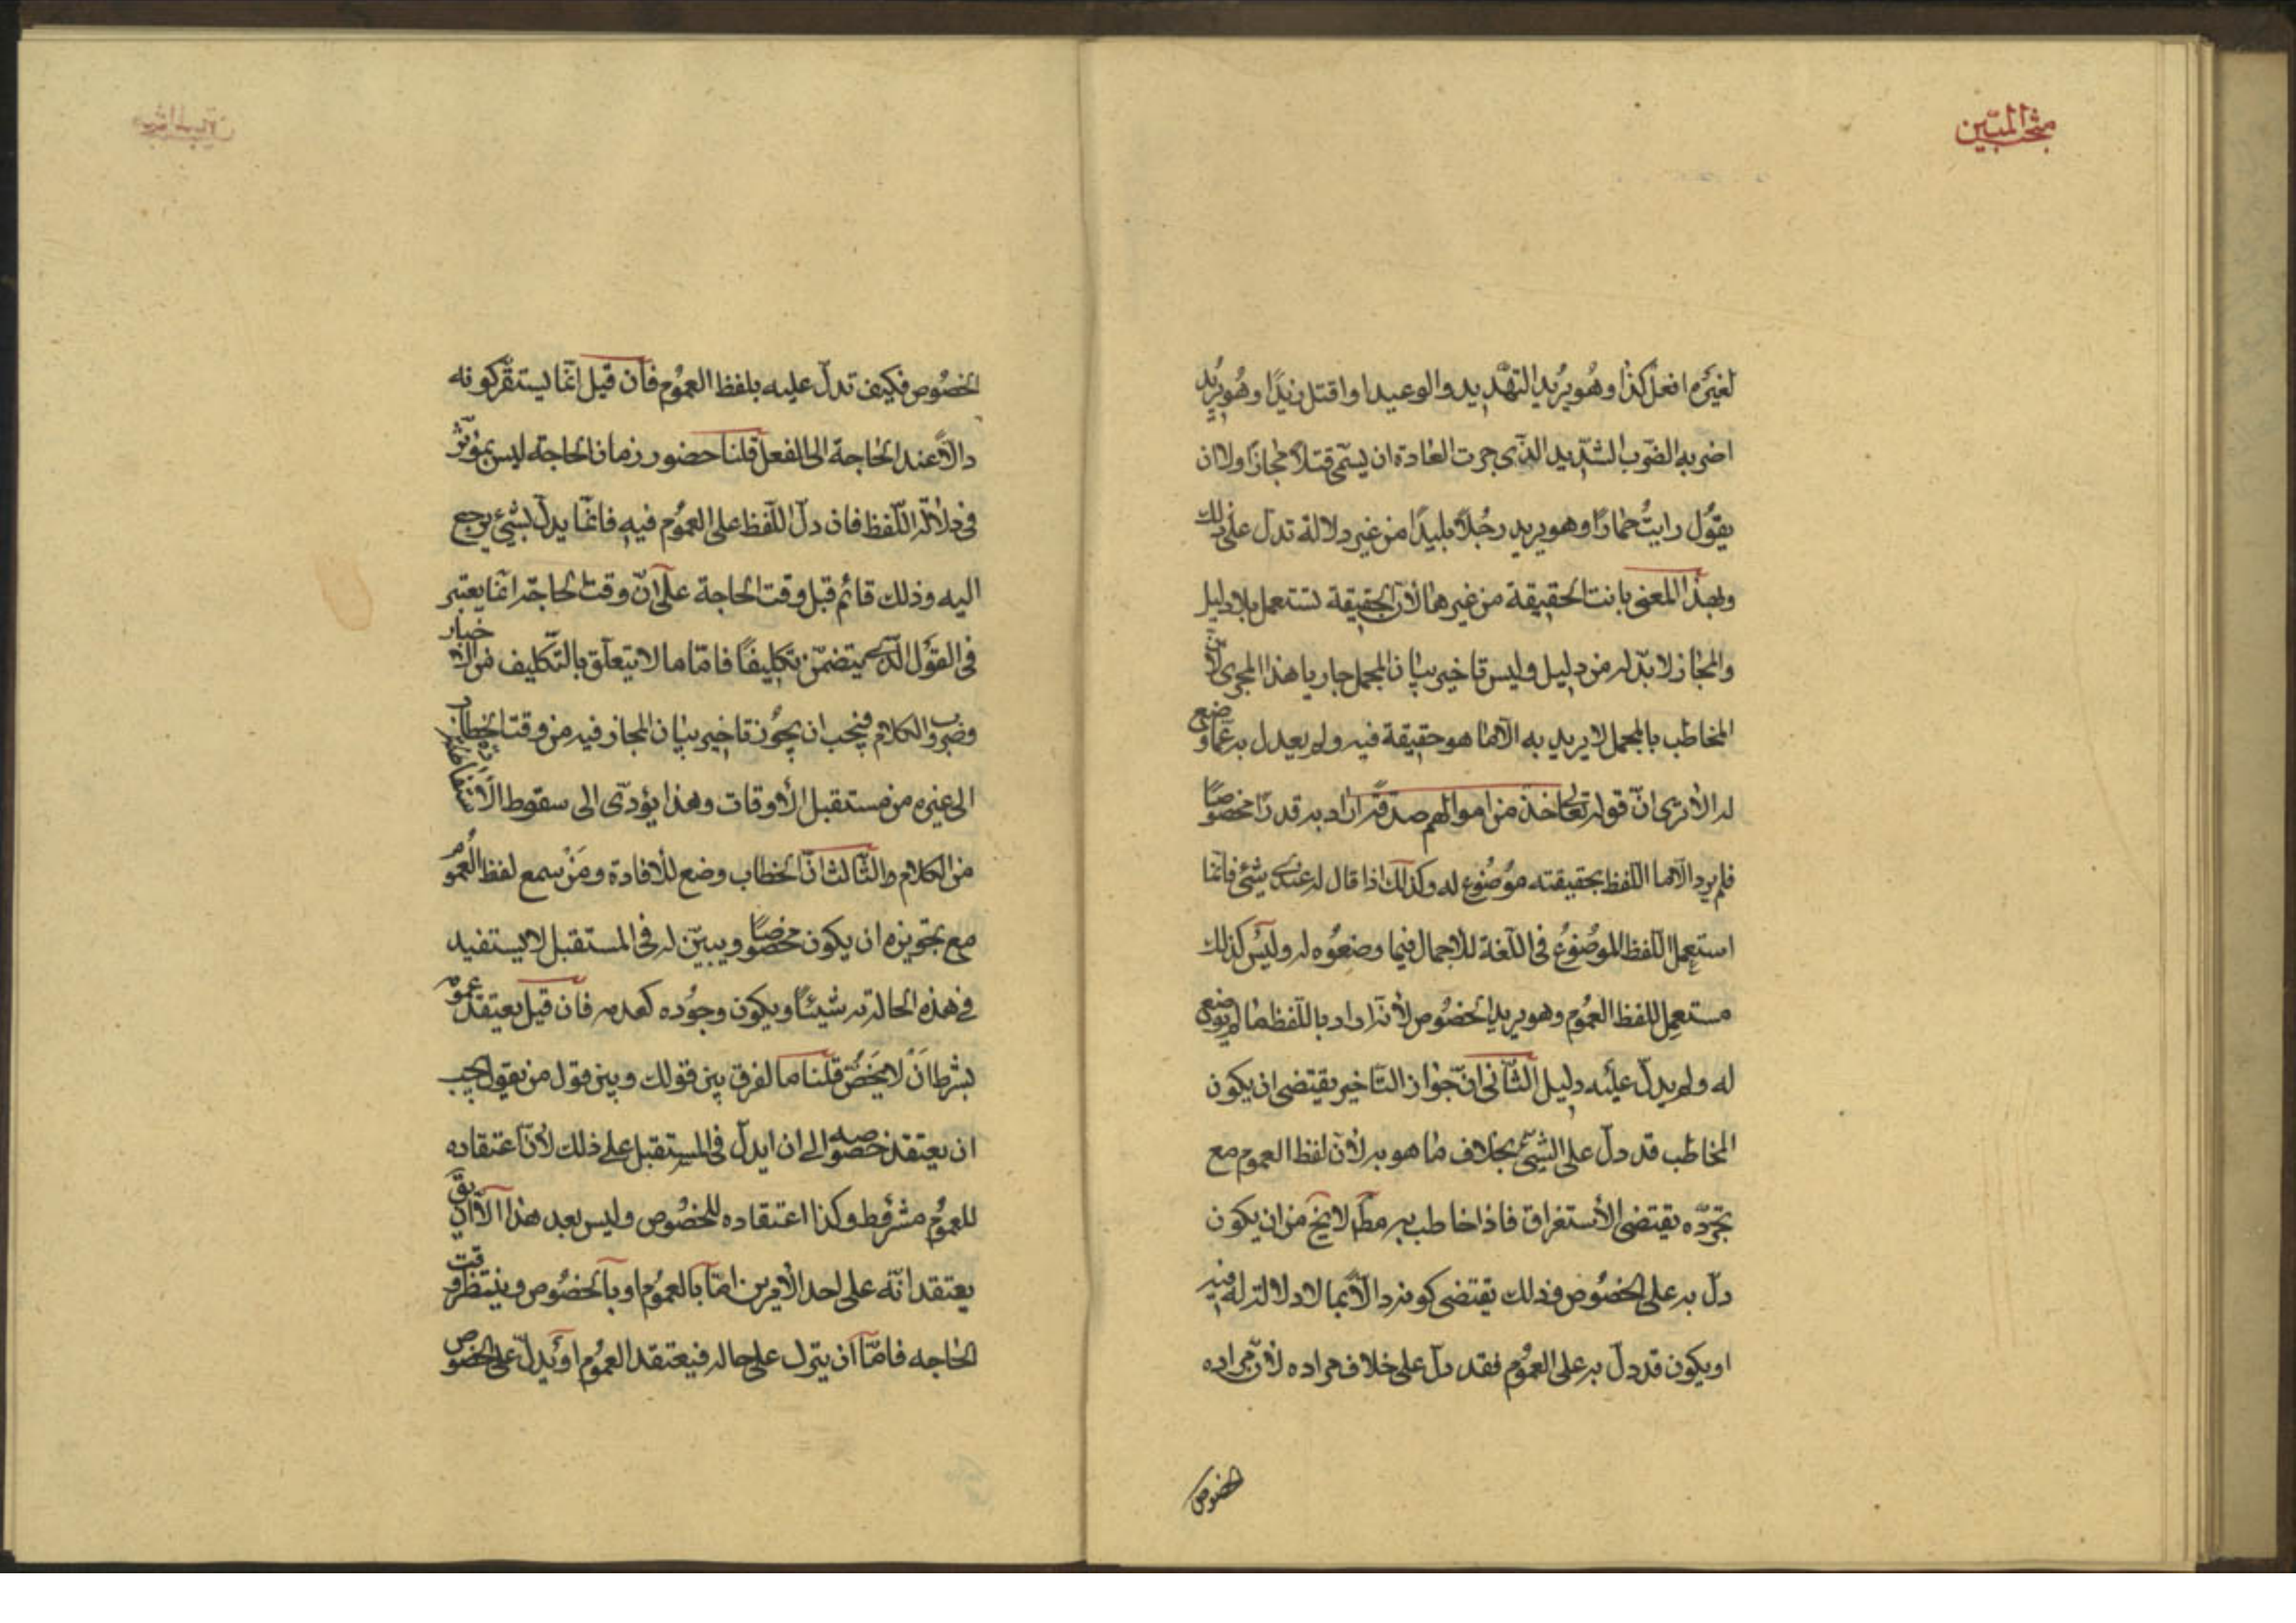 مبحث المبيّن
لغيره افعل كذا وهو يريد التهديد والوعيد او اقتل زيدًا وهو يريد
اضربه الضرب الشديد الذي جرت العادة ان يسمّى قتلًا مجازًا ولا ان
يقول رايتُ حمارًا وهو يريد رجُلًا بليدًا من غير دلالة تدلّ على ذلك
وبهذا المعنى بانت الحقيقة من غيرها لأنّ الحقيقة تستعمل بلا دليل
والمجاز لا بدّ له من دليل وليس تاخير بيان المجمل جاريا هذا المجرى لأنّ
المخاطب بالمجمل لا يريد به الّا ما هو حقيقة فيه ولم يعدل به عمّا وضع
له الا ترى انّ قوله تعالى خذ من اموالهم صدقة اراد به قدرًا مخصوصًا
فلم يرد الّا ما اللّفظ بحقيقته موضوع له وكذلك اذا قال له عندى شئ فانّما
استعمل اللّفظ الموضوع فى اللّغة للاجمال فيما وضعوه له وليس كذلك
مستعمل لفظ العموم وهو يريد الخصوص لأنّه اراد باللّفظ ما لم يوضع
له ولم يدلّ عليه دليل الثّانى انّ جواز التّاخير يقتضى ان يكون
المخاطب قد دلّ على الشّئ بخلاف ما هو به لأنّ لفظ العموم مع
تجرّده يقتضى الأستغراق فاذا خاطب به مطلقا لا يخ من ان يكون
دلّ به على الخصوص وذلك يقتضى كونه دالّا بما لا دلالة له فيه
او يكون قد دلّ به على العموم فقد دلّ على خلاف مراده لأنّ مراده
الخصوص
الخصوص فكيف تدلّ عليه بلفظ العموم فان قيل انّما يستقرّ كونه
دالّا عند الحاجة الى الفعل قلنا حضور زمان الحاجة ليس بمؤثّر
فى دلالة اللّفظ فان دلّ اللّفظ على العموم فيه فانّما يدلّ لشئ يرجع
اليه وذلك قائم قبل وقت الحاجة على انّ وقت الحاجة انّما يعتبر
فى القول الّذى يتضمّن تكليفًا فامّا ما لا يتعلّق بالتّكليف من الاخبار
وضروب الكلام فيجب ان يجوز تاخير بيان المجاز فيه من وقت الخطاب
الى غيره من مستقبل الأوقات وهذا يؤدّى الى سقوط الاستفادة
من الكلام والثّالث انّ الخطاب وضع للافادة ومَنْ سمع لفظ العموم
مع تجويزه ان يكون مخصوصًا ويبيّن له فى المستقبل لا يستفيد
فى هذه الحالة به شيئًا ويكون وجوده كعدمه فان قيل يعتقد عمومه
بشرط ان لا يخصّ قلنا ما الفرق بين قولك وبين قول من يقول يجب
ان يعتقد خصوصه الى ان ايدلّ فى المستقبل على ذلك لأنّ اعتقاده
للعموم مشروط وكذا اعتقاده للخصوص وليس بعد هذا الّا ان يق
يعتقد انّه على احد الأمرين امّا بالعموم او بالخصوص وينتظر وقت
الحاجه فامّا ان يترك على حاله فيعتقد العموم او يدلّ على الخصوص